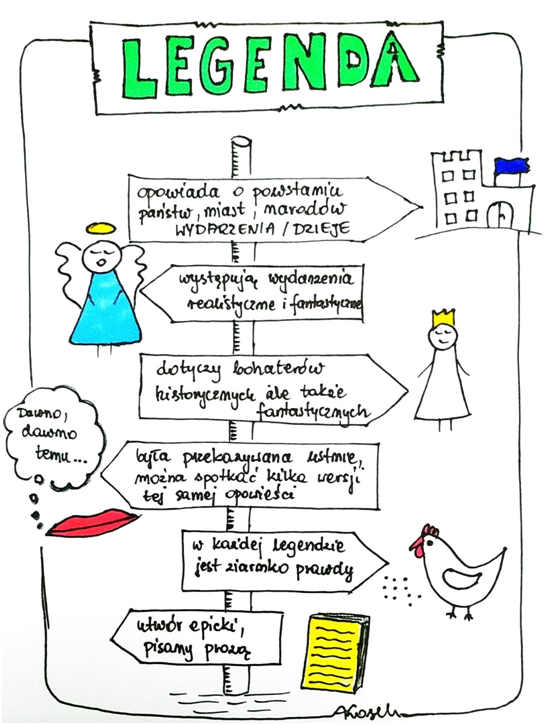 LEGENDA
opowiada o powstaniu
państw, miast, narodów
WYDARZENIA / DZIEJE
występują wydarzenia
realistyczne i fantastyczne
dotyczy bohaterów
historycznych ale także
fantastycznych
Dawno,
dawno
temu...
była przekazywana ustnie,
można spotkać kilka wersji
tej samej opowieści
w każdej legendzie
jest ziarnko prawdy
utwór epicki,
pisany prozą